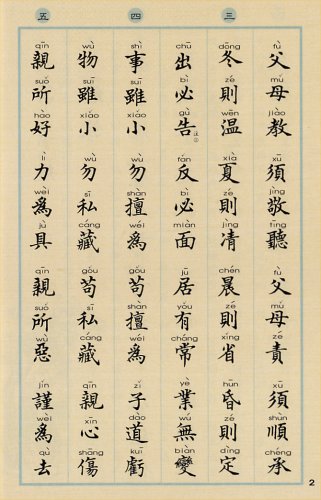 fù mǔ jiào xū jìng tīng fù mǔ zé xū shùn chéng
父母教須敬聽父母責須順承
三
dōng zé wēn xià zé jìng chén zé xǐng hūn zé dìng
冬則溫夏則凊晨則省昏則定
chū bì gù fǎn bì miàn jū yǒu cháng yè wú biàn
出必告反必面居有常業無變
四
shì suī xiǎo wù shàn wéi gǒu shàn wéi zǐ dào kuī
事雖小勿擅為苟擅為子道虧
wù suī xiǎo wù sī cáng gǒu sī cáng qīn xīn shāng
物雖小勿私藏苟私藏親心傷
五
qīn suǒ hào lì wèi jù qīn suǒ wù jǐn wèi qù
親所好力為具親所惡謹為去
2